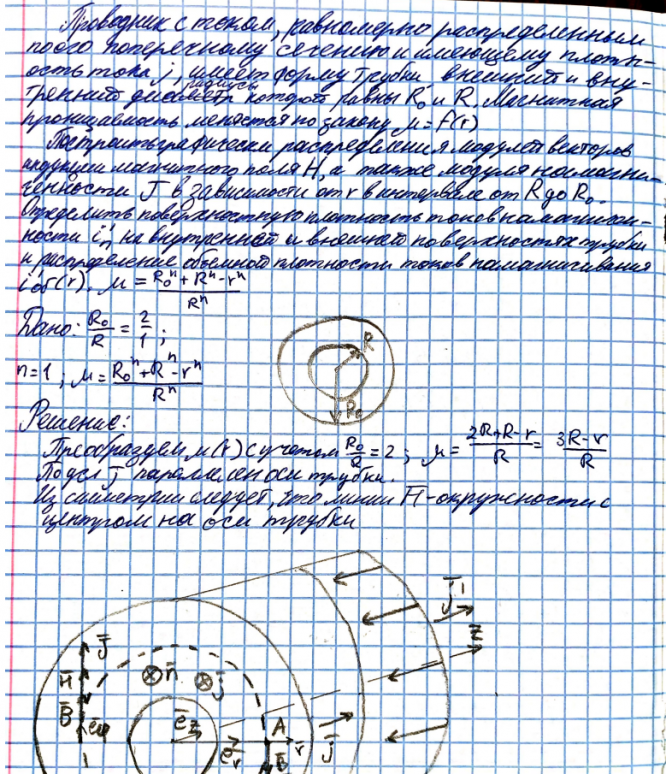 Проводник с током, равномерно распределенным
по его поперечному сечению и имеющему плотн-
ость тока j, имеет форму трубки внешний и вну-
радиусы
тренний диаметр которой равны R₀ и R. Магнитная
проницаемость меняется по закону μ=f(r)
Построить графически распределения модулей векторов
индукции магнитного поля H, а также модуля намагни-
ченности J в зависимости от r в интервале от R до R₀.
Определить поверхностную плотность токов намагничен-
ности i'ₙ на внутренней и внешней поверхностях трубки
и распределение объёмной плотности токов намагничивания
i'об(r). μ = (R₀ⁿ+Rⁿ-rⁿ)/Rⁿ
Дано: R₀/R = 2/1;
n=1; μ=(R₀ⁿ+Rⁿ-rⁿ)/Rⁿ
R
R₀
Решение:
Преобразуем μ(r) с учетом R₀/R = 2; μ= (2R+R-r)/R = (3R-r)/R
j параллелен оси трубки.
Из симметрии следует, что линии H̅ - окружности с
центром на оси трубки
J̅
H̅
B̅
n̅
j̅
e̅z
A
e̅r
r̅
B̅
j̅
j̅'
z̅